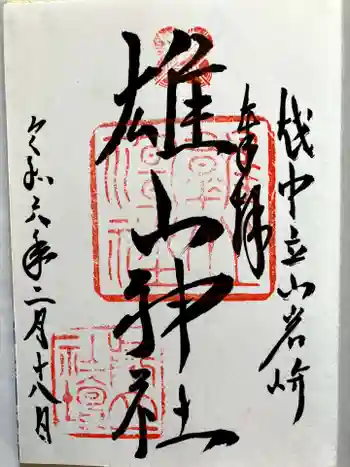 越中立山岩峅
奉拝
雄山神社
令和六年二月十八日